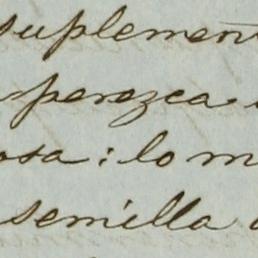 suplemen
perezca
osa: lo m
semilla